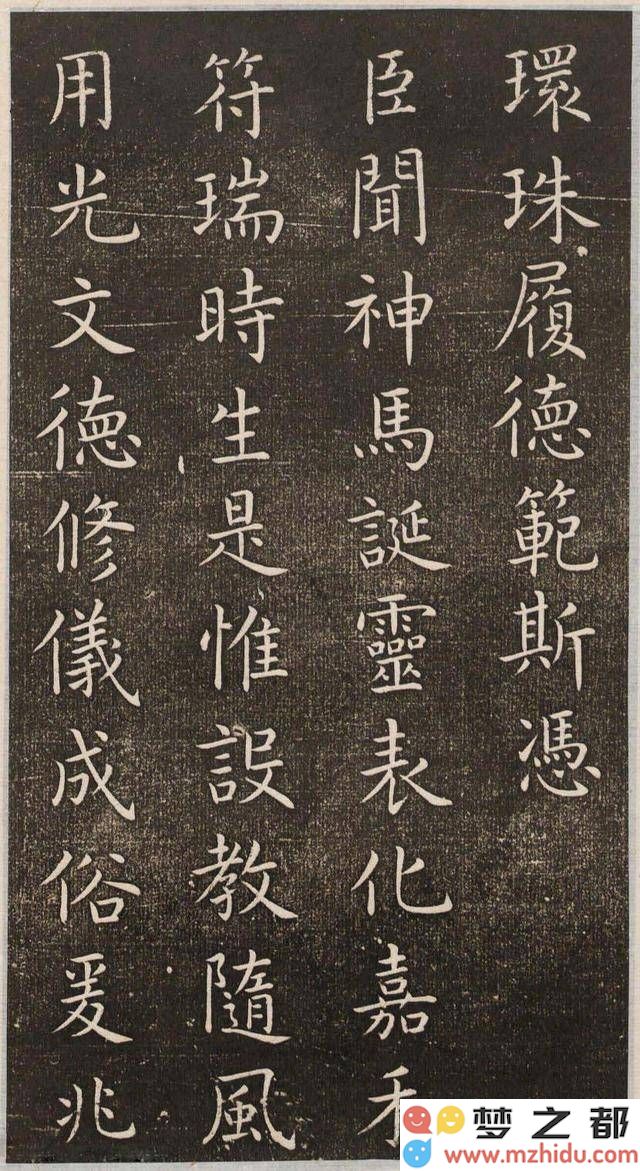 環珠履德範斯憑
臣聞神馬誕靈表化嘉禾
符瑞時生是惟設教隨風
用光文德修儀成俗爰兆
梦之都
www.mzhidu.com